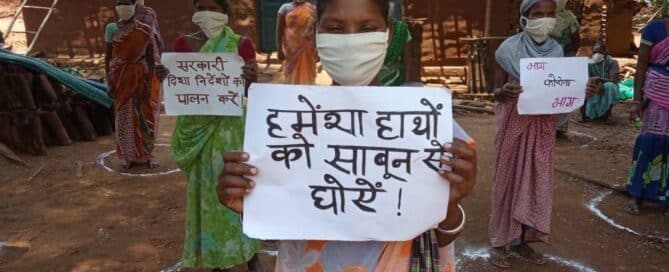 सरकारी
दिशा निर्देशों का
पालन करें
हमेंशा हाथों
को साबुन से
घोऐं !
भाग
कोरोना
भाग